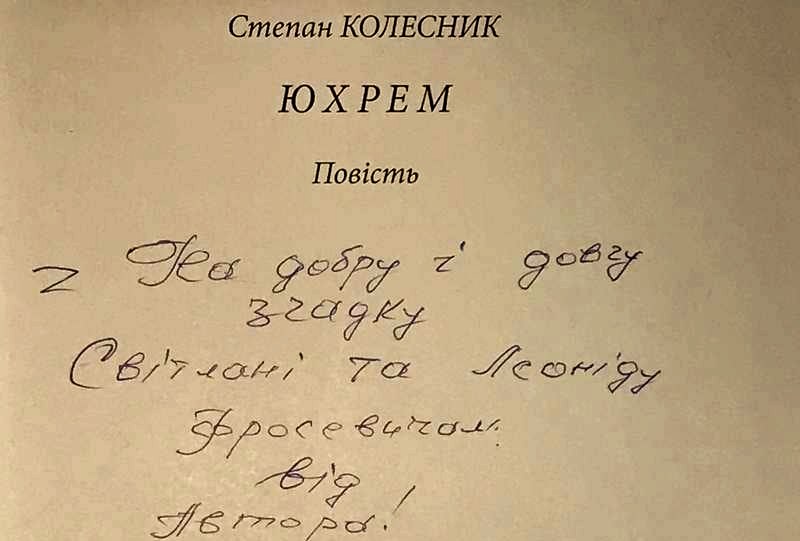 Степан КОЛЕСНИК
ЮХРЕМ
Повість
На добру і довгу
згадку
Світлані та Леоніду
Фросевичам
від
Автора!